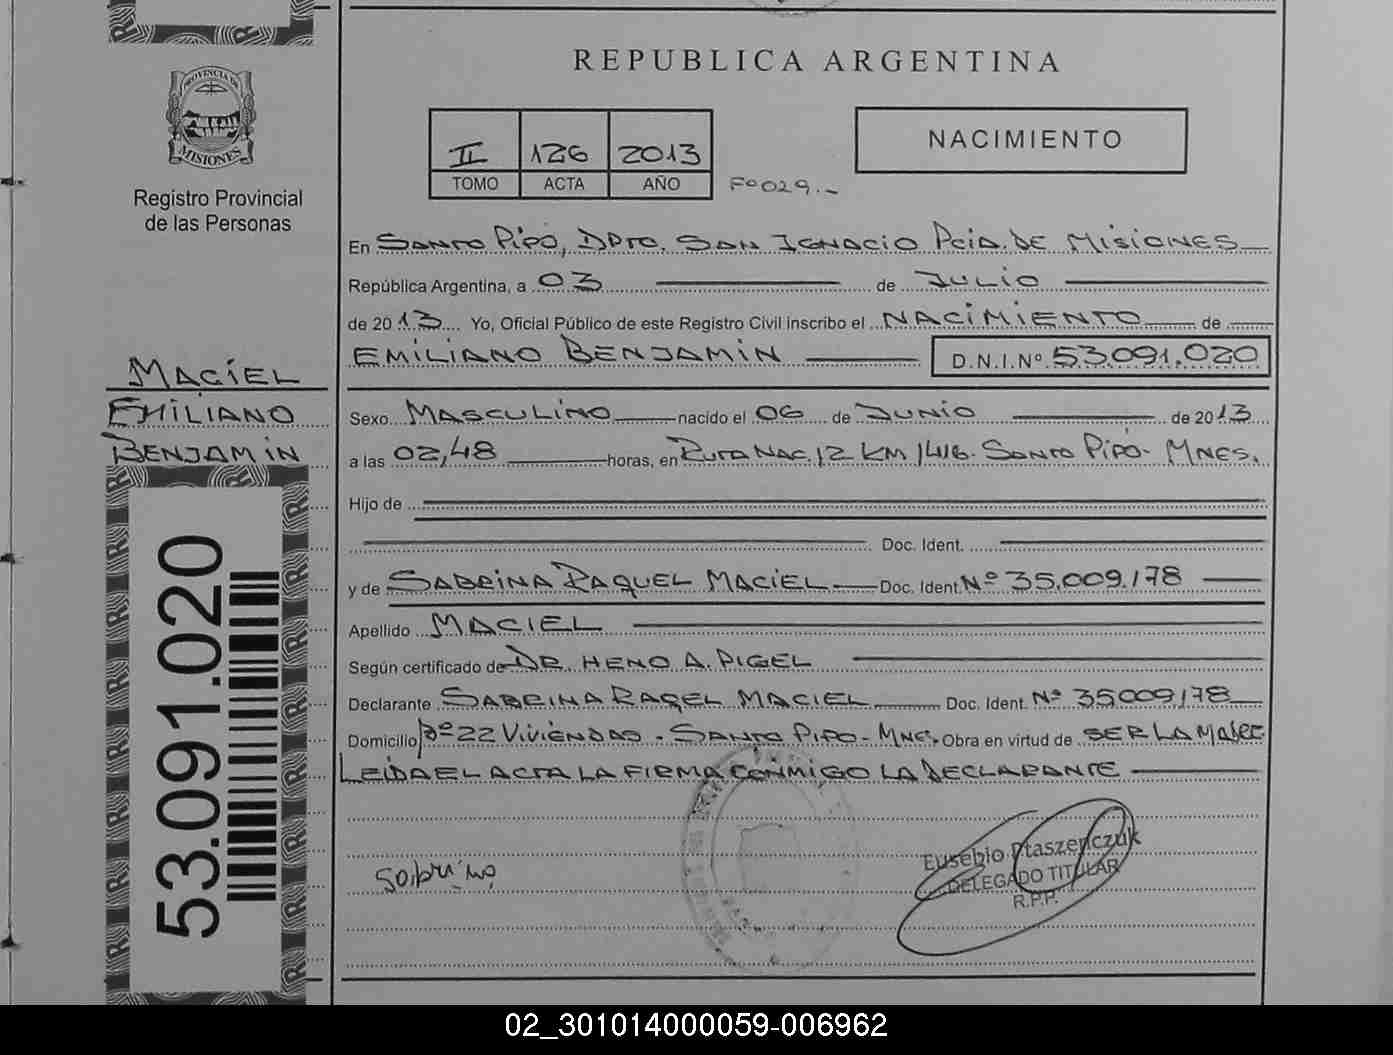 REPUBLICA ARGENTINA
PROVINCIA DE
MISIONES
Registro Provincial
de las Personas
II 126 2013
TOMO ACTA AÑO
Fº 029.-
NACIMIENTO
En SANTO PIPÓ, DPTO. SAN IGNACIO PCIA. DE MISIONES
República Argentina, a 03 de JULIO
de 2013 Yo, Oficial Público de este Registro Civil inscribo el NACIMIENTO de
EMILIANO BENJAMIN D.N.I.Nº 53.091.020
MACIEL
EMILIANO
BENJAMIN
Sexo MASCULINO nacido el 06 de JUNIO de 2013
a las 02,48 horas, en RUTA NAC. 12 KM 1416. SANTO PIPÓ- MNES.
Hijo de
Doc. Ident.
y de SABRINA RAQUEL MACIEL Doc. Ident. Nº 35.009.178
Apellido MACIEL
Según certificado de DR. HENO A. PIGEL
Declarante SABRINA RAQEL MACIEL Doc. Ident. Nº 35009178
Domicilio Bº 22 VIVIENDAS. SANTO PIPO- MNES. Obra en virtud de SER LA MADRE
LEIDA EL ACTA LA FIRMA CONMIGO LA DECLARANTE
53.091.020
Sabrina
Eusebio Ptaszenczuk
DELEGADO TITULAR
R.P.P.
02_301014000059-006962